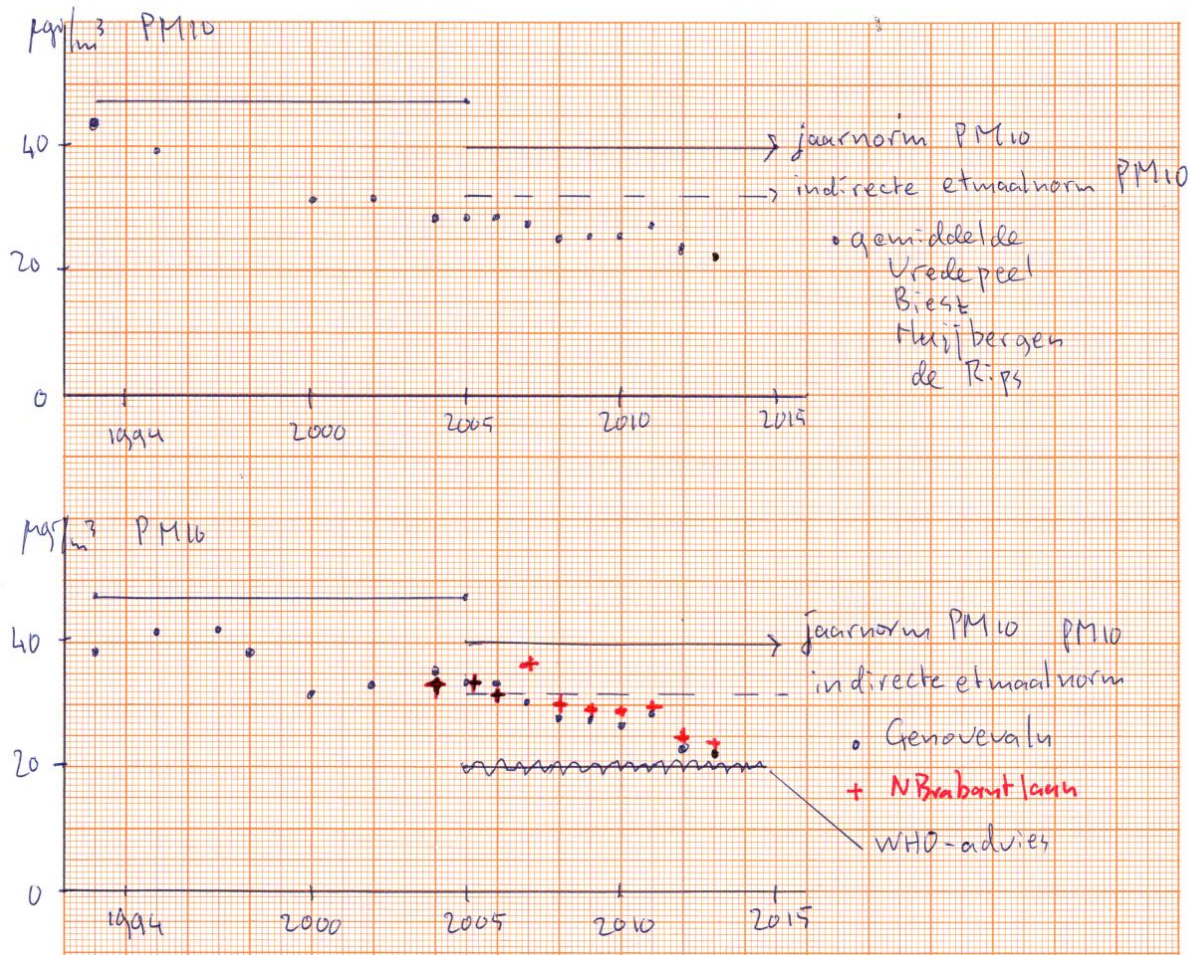 µgr/m³ PM10
40
20
0
1994 2000 2005 2010 2015
jaarnorm PM10
indirecte etmaalnorm PM10
gemiddelde
Vredepeel
Biest
Huijbergen
de Rips
µgr/m³ PM10
40
20
0
1994 2000 2005 2010 2015
jaarnorm PM10 PM10
indirecte etmaalnorm
Genovevaln
+ NBrabantlaan
WHO-advies